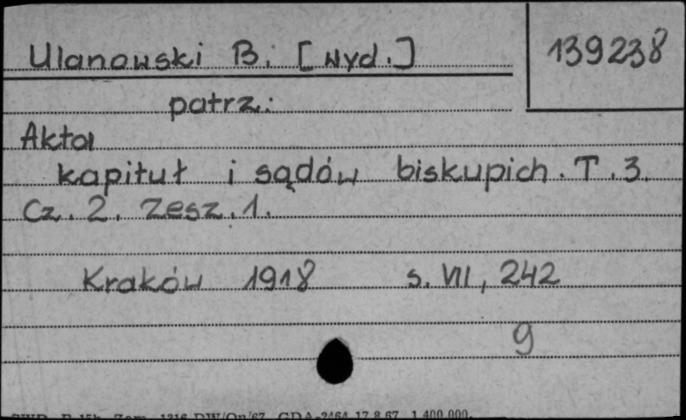 Ulanowski B. [wyd.]
139238
patrz:
Akta
kapituł i sądów biskupich. T. 3.
Cz. 2. Zesz. 1.
Kraków 1918 s. VII, 242
9
1316 DW/Op/67 GDA-2464 17.8.67 1.400.000.